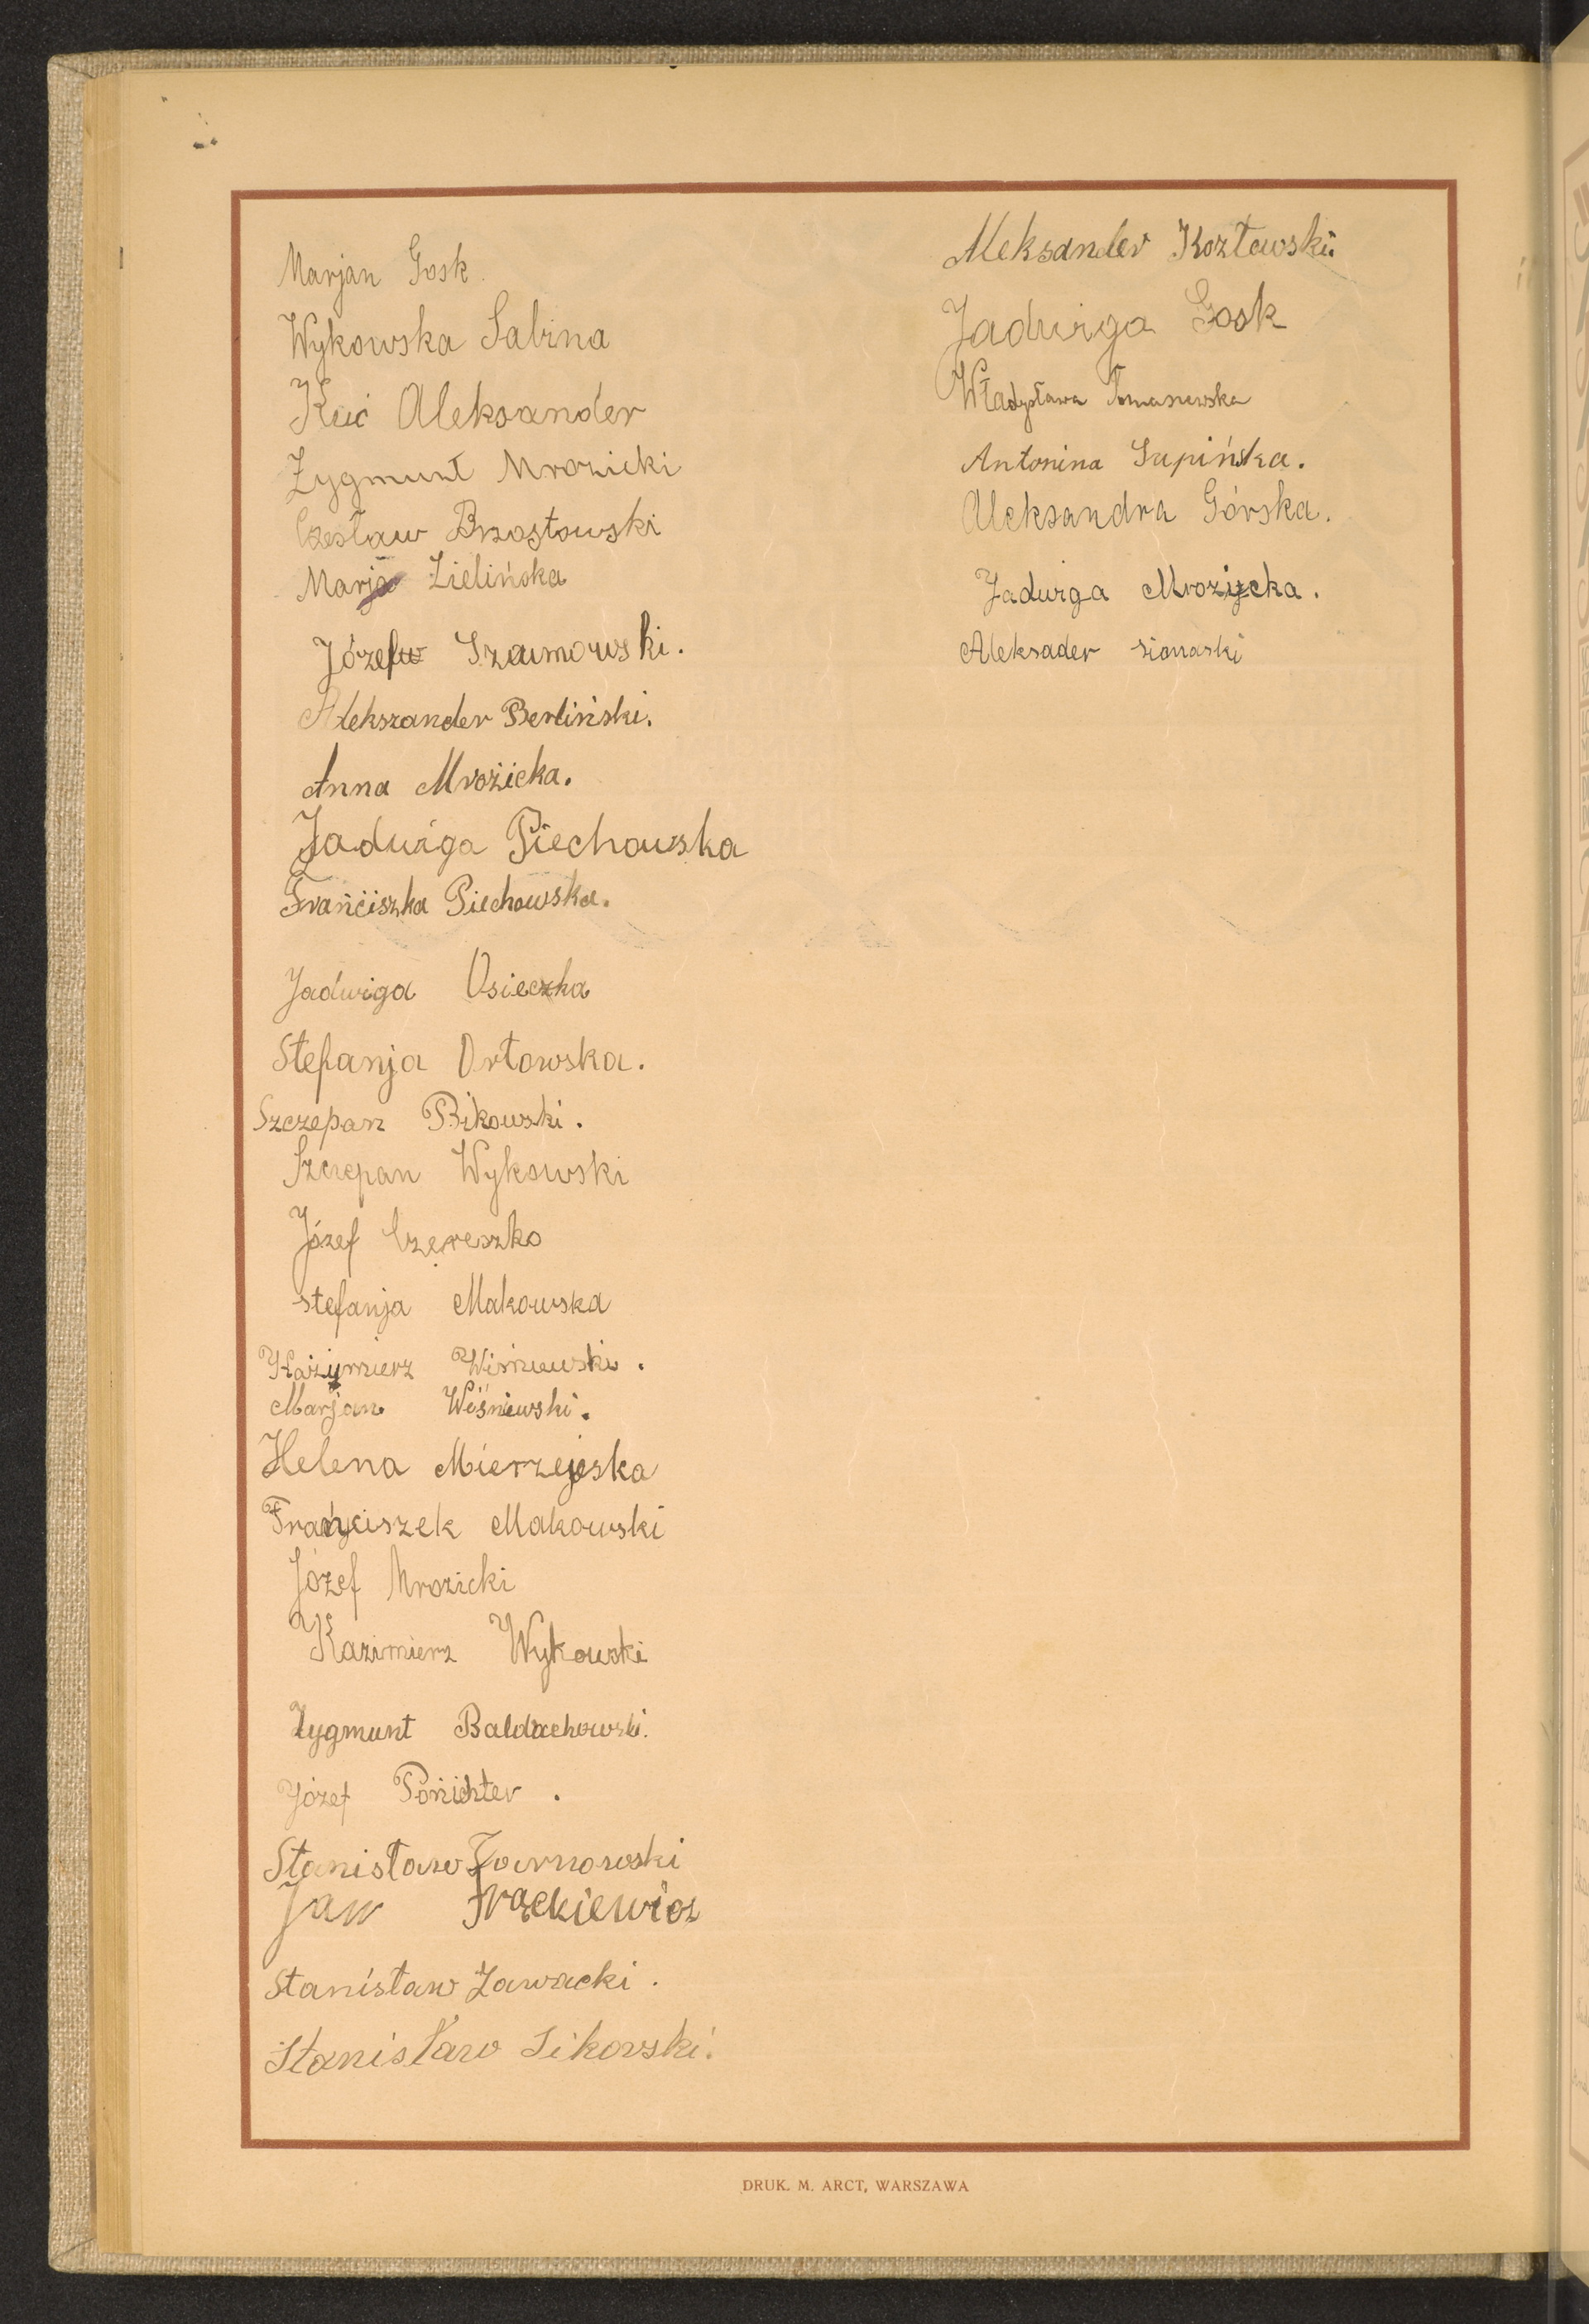 Marjan Gosk.
Wykowska Sabina
Kuć Aleksander
Zygmunt Mrozicki
Czesław Brzostowski
Marja Zielińska
Józef Szaumowski.
Alekszander Berliński.
Anna Mrozicka.
Jadwiga Piechowska
Frańciszka Piechowska.
Jadwiga Osieczka
Stefanja Orłowska.
Szczepan Bikowski.
Szczepan Wykowski
Józef Czereszko
stefanja Makowska
Kazimierz Wiśniewski.
Marjan Wiśniewski.
Helena Mierzejeska
Franciszek Makowski
Józef Mrozicki
Kazimierz Wykowski
Zygmunt Baldachowski.
Józef Ponichter.
Stanisław Żarnowski
Jan Frąckiewicz
Stanisław Zawacki.
Stanisław Sikorski.
Aleksander Kozłowski.
Jadwiga Gosk
Władysława Tomaszewska
Antonina Supińska.
Aleksandra Górska.
Jadwiga Mrozicka.
Aleksader
DRUK. M. ARCT, WARSZAWA